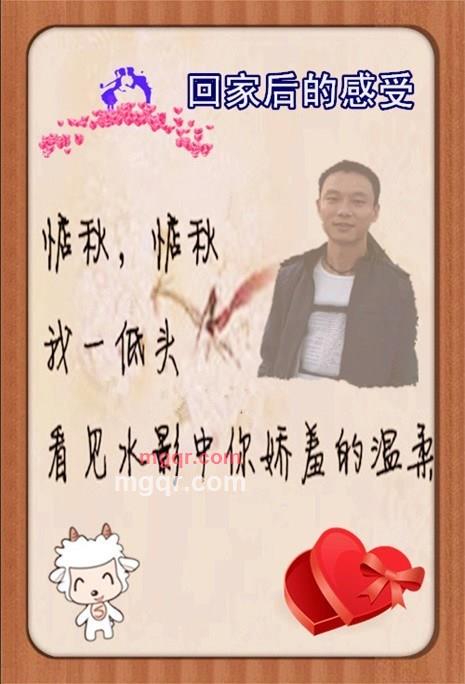 回家后的感受
惦秋，惦秋
我一低头
看见水影中你娇羞的温柔
mgqr.com
mgqr.com